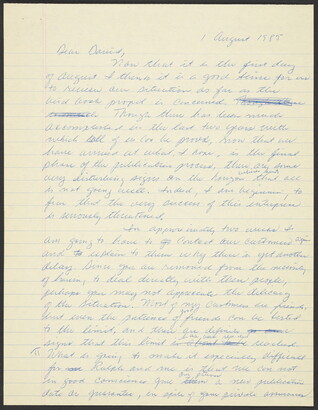 1 August 1985
Dear David,
Now that it is the first day
of August I think it is a good time for me
to review our intention so far as the
acid book project is concerned.
Though there has been much
accomplished in the last two years with
which all of us can be proud, now that we
have arrived at what, I hope, is the final
phase of the publication process, there are some
very disturbing signs on the horizon that all
is not going well. Indeed, I am beginning to
fear that the very success of this enterprise
is seriously threatened.
In approximately two weeks I
am going to have to contact our customers again
and to explain to them why there is yet another
delay. Since you are removed from the necessity
of having to deal directly with these people,
perhaps you may not appreciate the delicacy
of the situation. Most of my customers are friends,
and even the patience of friends can be tested
to the limit, and there are definite
signs that this limit is reached.
What is going to make it especially difficult
for Ralph and me is that we can not
in good conscience give them a new publication
date or guarantee, in spite of giving private